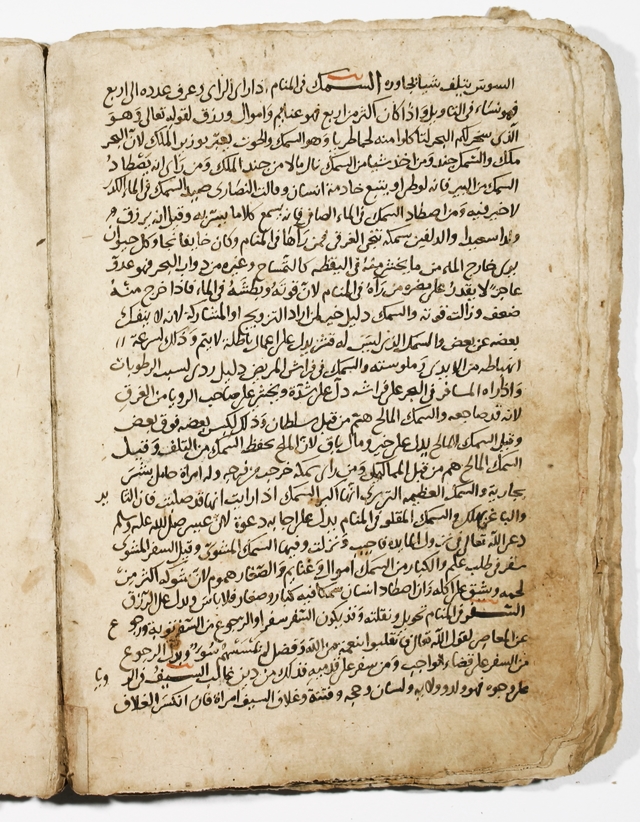 السوس يتلف شيا بجاوره السمك في المنام اذا راى الراى وعرف عدده الى اربع
فهو نساء في التاويل واذا كان اكثر من اربع فهو غنايم واموال ورزق لقوله تعالى وهو
الذى سخر لكم البحر لتاكلوا منه لحما طريا وهو السمك والحوت يعبر بوزير الملك لان البحر
ملك والسمك جنده ومن اخذ شيا من السمك نال مالا من جند الملك ومن راى انه يصطاد
السمك من البير فانه لوطى او يبيع خادمه انسان وقالت النصارى صيد السمك في الماء الكدر
لا خير فيه ومن اصطاد السمك في الماء الصافي فانه يسمع كلاما يسر به وقيل انه يرزق
ولدا سعيدا والدلفين سمكة تنجى الغرقى فمن راها في المنام وكان خايفا نجا وكل حيوان
يرى خارج الماء من ما يخشى منه في اليقظه كالتمساح وغيره من دواب البحر فهو عدو
عاجز لا يقدر على مضره من رآه في المنام لان قوته وبطشه في الماء فاذا خرج منه
ضعف وزالت قوته والسمك دليل خير لمن اراد التزويج او المشاركة لانه لا ينفك
بعضه عن بعض والسمك الذى ليس له قشر يدل على اعمال باطلة لا يتم وذلك لسرعة
انهباطه من الايدى و ملوسته والسمك في فراش المريض دليل ردى لسبب الرطوبات
واذا راه المسافر في البحر على فراشه دل على شدة ويخشى على صاحب الرويا من الغرق
لانه قد ضاجعه والسمك المالح هم من قبل سلطان وذلك لكبس بعضه فوق بعض
وقيل السمك المالح يدل على خير ومال باق لان الملح يحفظ السمك من التلف وقيل
السمك المالح هم من قبل المماليك ومن راى سمكة خرجت من فرجه وله امراة حامل بشر
بجارية والسمك العظيمه التى اكبر السمك اذا رايت انها قد صلت فان
والباغى يهلك والسمك المقلو في المنام يدل على اجابه دعوة لان عيسى صلى الله عليه وسلم
دعى الله تعالى في نزول المايده فاجيب ونزلت وفيها السمك المشوى وقيل السمك المشوى
سفر في طلب علم والكبار من السمك اموال وغنايم والصغار هموم لان شوكه اكثر من
لحمه ويشق على اكله وان اصطاد انسان سمكا فيه كبار وصغار فلا باس ويدل على الرزق
السفر في المنام تحويل ونقلته وقد يكون السفر سفرا والرجوع من السفر توبة ورجوع
عن المعاصى لقول الله تعالى فانقلبوا بنعمة من الله وفضل لم يمسسهم سوء ويدل الرجوع
من السفر على قضاء الواجب ومن سفر على قدميه فذلك من دين غالب السيف في الرويا
على وجوه فهو ولد وولايه ولسان وحجه وفتنة وغلاف السيف امراة فان انكسر الغلاف